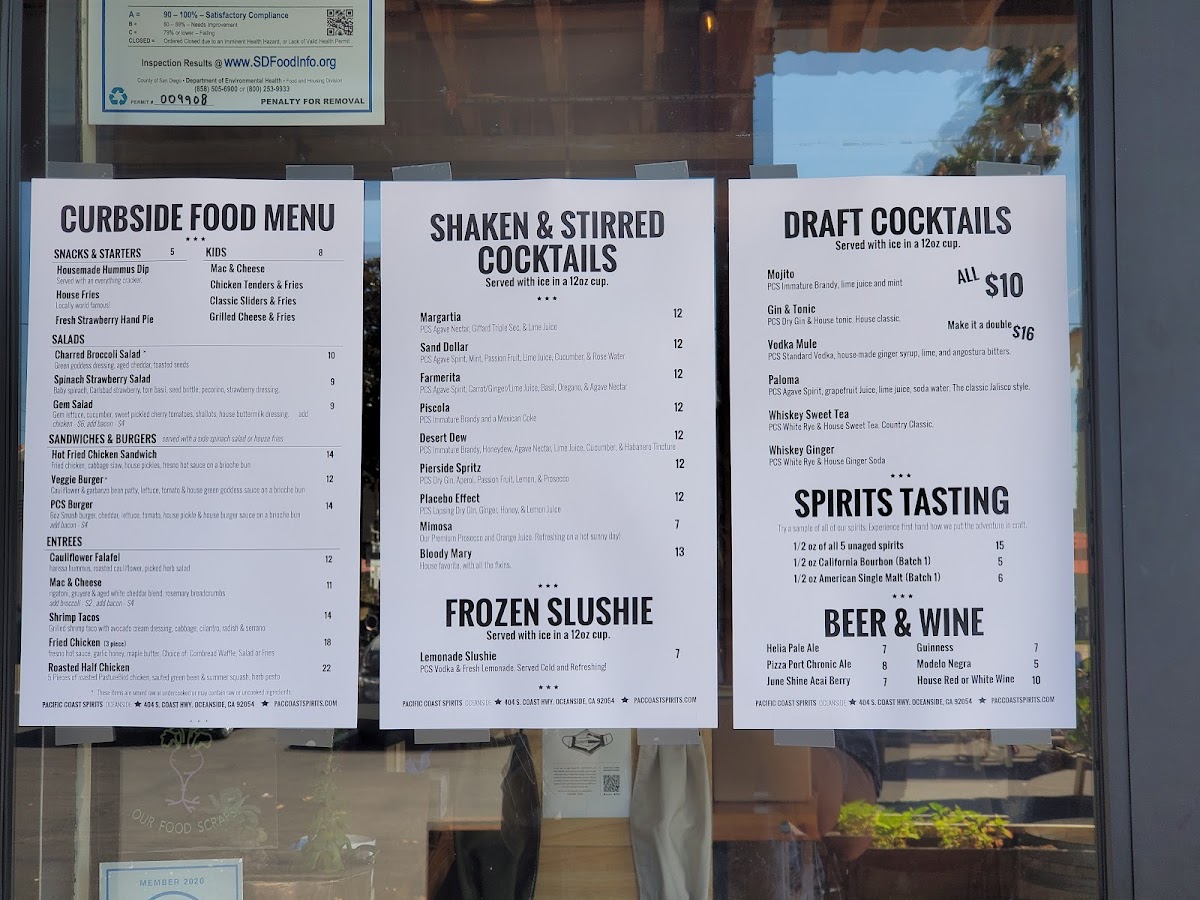 A = 90 – 100% – Satisfactory Compliance
B = 80 – 89% – Needs Improvement
C = 79% or lower – Failing
CLOSED = Ordered Closed due to an Imminent Health Hazard, or Lack of Valid Health Permit
Inspection Results @ www.SDFoodInfo.org
County of San Diego • Department of Environmental Health • Food and Housing Division
(858) 505-6900 or (800) 253-9933
PERMIT # 009908 PENALTY FOR REMOVAL
CURBSIDE FOOD MENU
SNACKS & STARTERS 5
Housemade Hummus Dip
Served with an everything cracker.
House Fries
Locally world famous!
Fresh Strawberry Hand Pie
KIDS 8
Mac & Cheese
Chicken Tenders & Fries
Classic Sliders & Fries
Grilled Cheese & Fries
SALADS
Charred Broccoli Salad * 10
Green goddess dressing, aged cheddar, toasted seeds
Spinach Strawberry Salad 9
Baby spinach, Carlsbad strawberry, torn basil, seed brittle, pecorino, strawberry dressing.
Gem Salad 9
Gem lettuce, cucumber, sweet pickled cherry tomatoes, shallots, house buttermilk dressing. add
chicken - $6, add bacon - $4
SANDWICHES & BURGERS served with a side spinach salad or house fries
Hot Fried Chicken Sandwich 14
Fried chicken, cabbage slaw, house pickles, fresno hot sauce on a brioche bun
Veggie Burger * 12
Cauliflower & garbanzo bean patty, lettuce, tomato & house green goddess sauce on a brioche bun
PCS Burger 14
6oz Smash burger, cheddar, lettuce, tomato, house pickle & house burger sauce on a brioche bun
add bacon - $4
ENTREES
Cauliflower Falafel 12
harissa hummus, roasted cauliflower, picked herb salad
Mac & Cheese 11
rigatoni, gruyere & aged white cheddar blend, rosemary breadcrumbs
add broccoli - $2, add bacon - $4
Shrimp Tacos 14
Grilled shrimp taco with avocado cream dressing, cabbage, cilantro, radish & serrano
Fried Chicken (3 piece) 18
fresno hot sauce, garlic honey, maple butter, Choice of: Cornbread Waffle, Salad or Fries
Roasted Half Chicken 22
5 Pieces of roasted Pasturebird chicken, sauteed green bean & summer squash, herb pesto
* These items are served raw or undercooked or may contain raw or uncooked ingredients.
PACIFIC COAST SPIRITS OCEANSIDE ★ 404 S. COAST HWY, OCEANSIDE, CA 92054 ★ PACCOASTSPIRITS.COM
SHAKEN & STIRRED
COCKTAILS
Served with ice in a 12oz cup.
Margartia 12
PCS Agave Nectar, Giffard Triple Sec, & Lime Juice
Sand Dollar 12
PCS Agave Spirit, Mint, Passion Fruit, Lime Juice, Cucumber, & Rose Water
Farmerita 12
PCS Agave Spirit, Carrot/Ginger/Lime Juice, Basil, Oregano, & Agave Nectar
Piscola 12
PCS Immature Brandy and a Mexican Coke
Desert Dew 12
PCS Immature Brandy, Honeydew, Agave Nectar, Lime Juice, Cucumber, & Habanero Tincture
Pierside Spritz 12
PCS Dry Gin, Aperol, Passion Fruit, Lemon, & Prosecco
Placebo Effect 12
PCS Lapsing Dry Gin, Ginger, Honey, & Lemon Juice
Mimosa 7
Our Premium Prosecco and Orange Juice. Refreshing on a hot sunny day!
Bloody Mary 13
House favorite, with all the fixins.
FROZEN SLUSHIE
Served with ice in a 12oz cup.
Lemonade Slushie 7
PCS Vodka & Fresh Lemonade. Served Cold and Refreshing!
PACIFIC COAST SPIRITS OCEANSIDE ★ 404 S. COAST HWY, OCEANSIDE, CA 92054 ★ PACCOASTSPIRITS.COM
DRAFT COCKTAILS
Served with ice in a 12oz cup.
Mojito
PCS Immature Brandy, lime juice and mint
ALL $10
Gin & Tonic
PCS Dry Gin & House tonic. House classic.
Make it a double $16
Vodka Mule
PCS Standard Vodka, house-made ginger syrup, lime, and angostura bitters.
Paloma
PCS Agave Spirit, grapefruit Juice, lime juice, soda water. The classic Jalisco style.
Whiskey Sweet Tea
PCS White Rye & House Sweet Tea. Country Classic.
Whiskey Ginger
PCS White Rye & House Ginger Soda
SPIRITS TASTING
Try a sample of all of our spirits. Experience first hand how we put the adventure in craft.
1/2 oz of all 5 unaged spirits 15
1/2 oz California Bourbon (Batch 1) 5
1/2 oz American Single Malt (Batch 1) 6
BEER & WINE
Helia Pale Ale 7
Pizza Port Chronic Ale 8
June Shine Acai Berry 7
Guinness 7
Modelo Negra 5
House Red or White Wine 10
PACIFIC COAST SPIRITS OCEANSIDE ★ 404 S. COAST HWY, OCEANSIDE, CA 92054 ★ PACCOASTSPIRITS.COM
OUR FOOD SCRAPS
MEMBER 2020